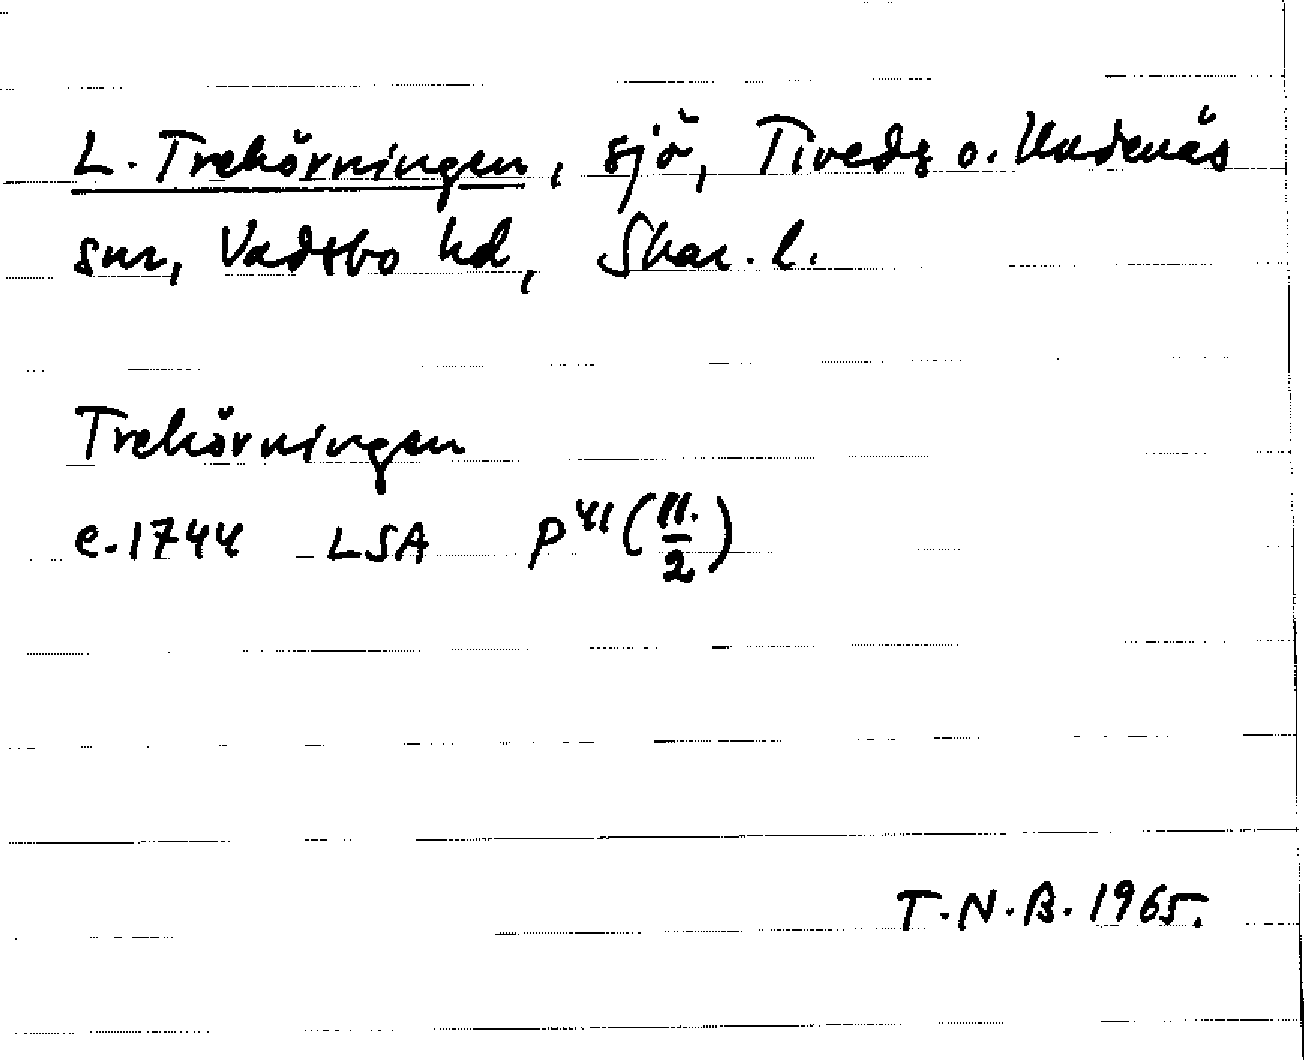 L. Trehörningen, sjö, Tiveds o. Undenäs
snr, Vadsbo hd, Skar. l.
Trehörningen
c. 1744 LSA P 41 (11./2)
T.N.B. 1965.